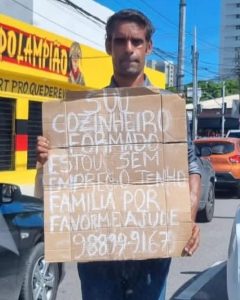 POLAMPIÃO
RT PRO QUEDERE
SOU
COZINHEIRO
FORMADO
ESTOU SEM
EMPREGO TENHO
FAMILIA POR
FAVOR ME AJUDE
98899-9167